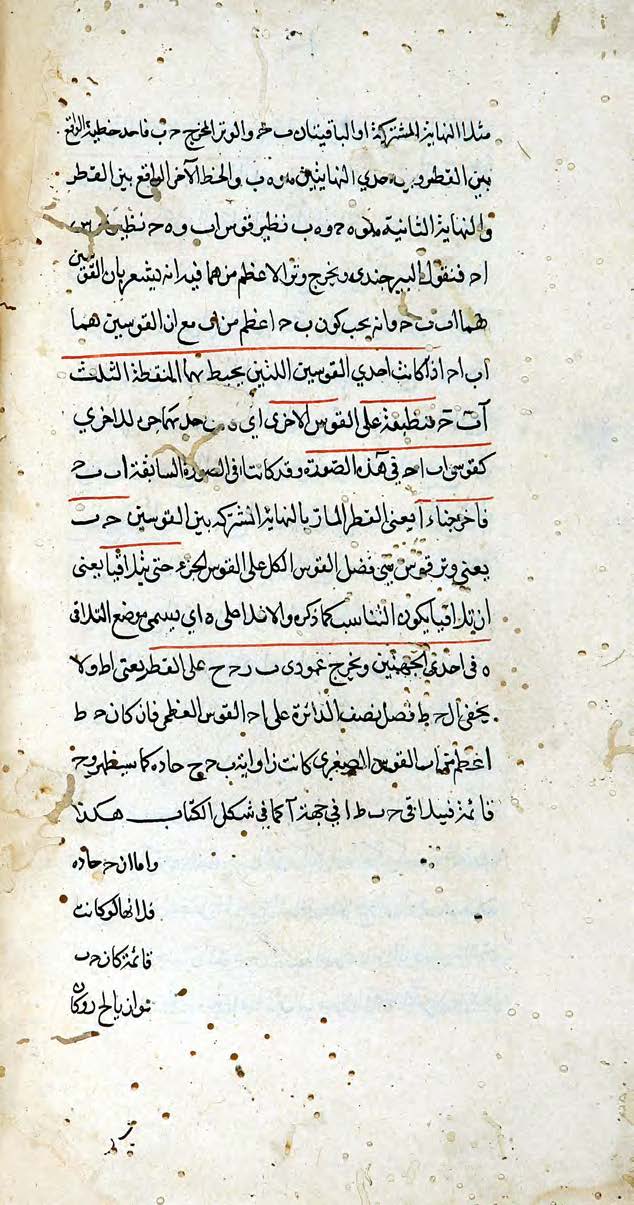 مثلا النهاية المشتركة او الباقيتان ب ح والوتر المخرج ح ب فاحد خطية الواقع
بين القطر و احدي النهايتين ه ب والخط الآخر الواقع بين القطر
والنهاية الثانية ه ح و ه ب نظير قوس اب و ه ح نظير قوس
اح فنقول البيرجندي ويخرج وتر الاعظم منهما فيه انه يشعر بان القوسين
هما اب ب ح وانه يجب كون ب ح اعظم من اب مع ان القوسين هما
اب اح اذا كانت احدي القوسين اللتين يحيط بهما النقطة الثلث
آ ب ح منطبقة علي القوس الاخري اي احديهما جزء للاخري
كقوسي اب اح في هذه الصورة وقد كانتا في الصورة السابقة اب ب ح
فاخرجنا ء آ يعني القطر المار بالنهاية المشتركة بين القوسين ح ب
يعني وتر قوس هي فضل القوس الكل علي القوس الجزء حتي يتلاقيا يعني
ان تلاقيا يكون التناسب كما ذكر والا فلا علي ه اي يسمي موضع التلاقي
ه في احدي الجهتين ويخرج عمودي ب ر ح ح علي القطر يعني اط ولا
يخفي ان ح ط فضل نصف الدائرة علي اح القوس العظمي فان كان ح ط
اعظم من اب القوس الصغري كانت زاوية ب ح ح حادة كما سيظهر و ح
قائمة فيتلاقي ح ب ط ا في جهة آ كما في شكل الكتاب هكذا
واما ان ح حاده
فلانها لو كانت
قائمة كان ح ب
موازيا لح ر وكان